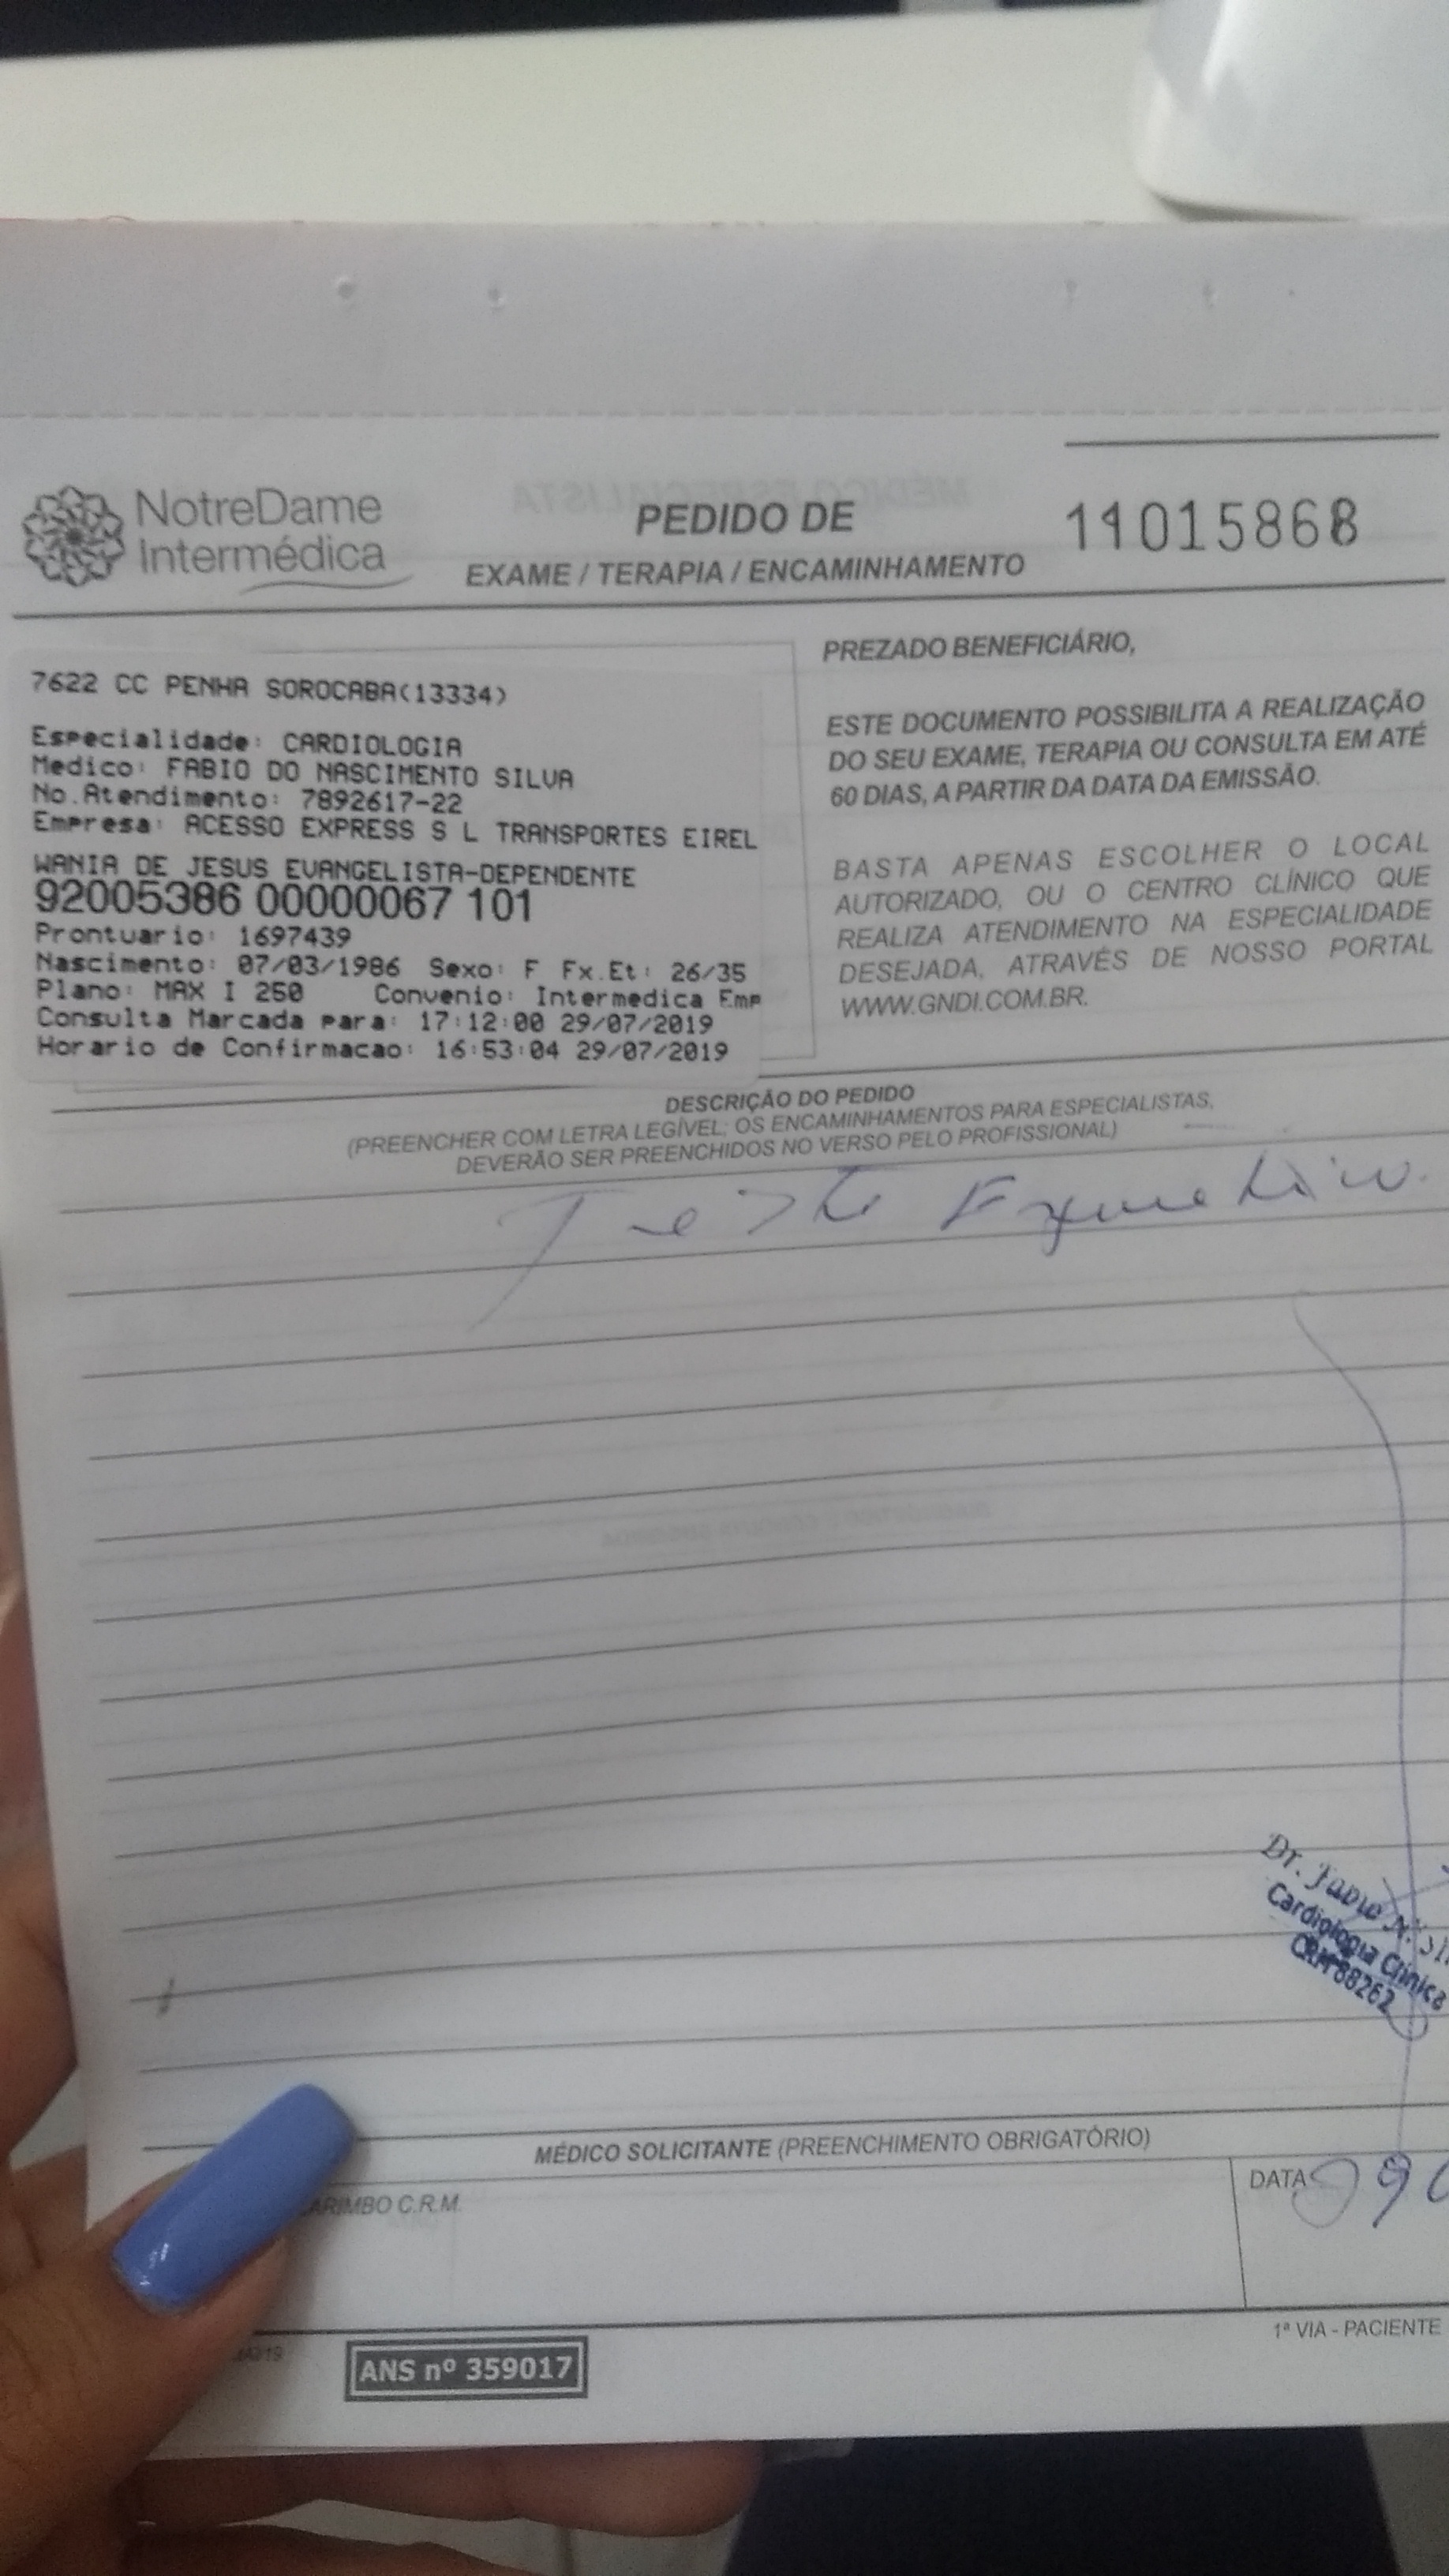 NotreDame
Intermédica
PEDIDO DE
EXAME / TERAPIA / ENCAMINHAMENTO
11015868
7622 CC PENHA SOROCABA(13334)
Especialidade: CARDIOLOGIA
Medico: FABIO DO NASCIMENTO SILVA
No.Atendimento: 7892617-22
Empresa: ACESSO EXPRESS S L TRANSPORTES EIREL
WANIA DE JESUS EVANGELISTA-DEPENDENTE
92005386 00000067 101
Prontuario: 1697439
Nascimento: 07/03/1986 Sexo: F Fx.Et: 26/35
Plano: MAX I 250 Convenio: Intermedica Emp
Consulta Marcada para: 17:12:00 29/07/2019
Horario de Confirmacao: 16:53:04 29/07/2019
PREZADO BENEFICIÁRIO,
ESTE DOCUMENTO POSSIBILITA A REALIZAÇÃO
DO SEU EXAME, TERAPIA OU CONSULTA EM ATÉ
60 DIAS, A PARTIR DA DATA DA EMISSÃO.
BASTA APENAS ESCOLHER O LOCAL
AUTORIZADO, OU O CENTRO CLÍNICO QUE
REALIZA ATENDIMENTO NA ESPECIALIDADE
DESEJADA, ATRAVÉS DE NOSSO PORTAL
WWW.GNDI.COM.BR.
DESCRIÇÃO DO PEDIDO
(PREENCHER COM LETRA LEGÍVEL; OS ENCAMINHAMENTOS PARA ESPECIALISTAS,
DEVERÃO SER PREENCHIDOS NO VERSO PELO PROFISSIONAL)
Teste
Dr. Fabio N.
Cardiologia Clínica
CRM 88262
MÉDICO SOLICITANTE (PREENCHIMENTO OBRIGATÓRIO)
ARIMBO C.R.M.
DATA 29
1ª VIA - PACIENTE
ANS nº 359017